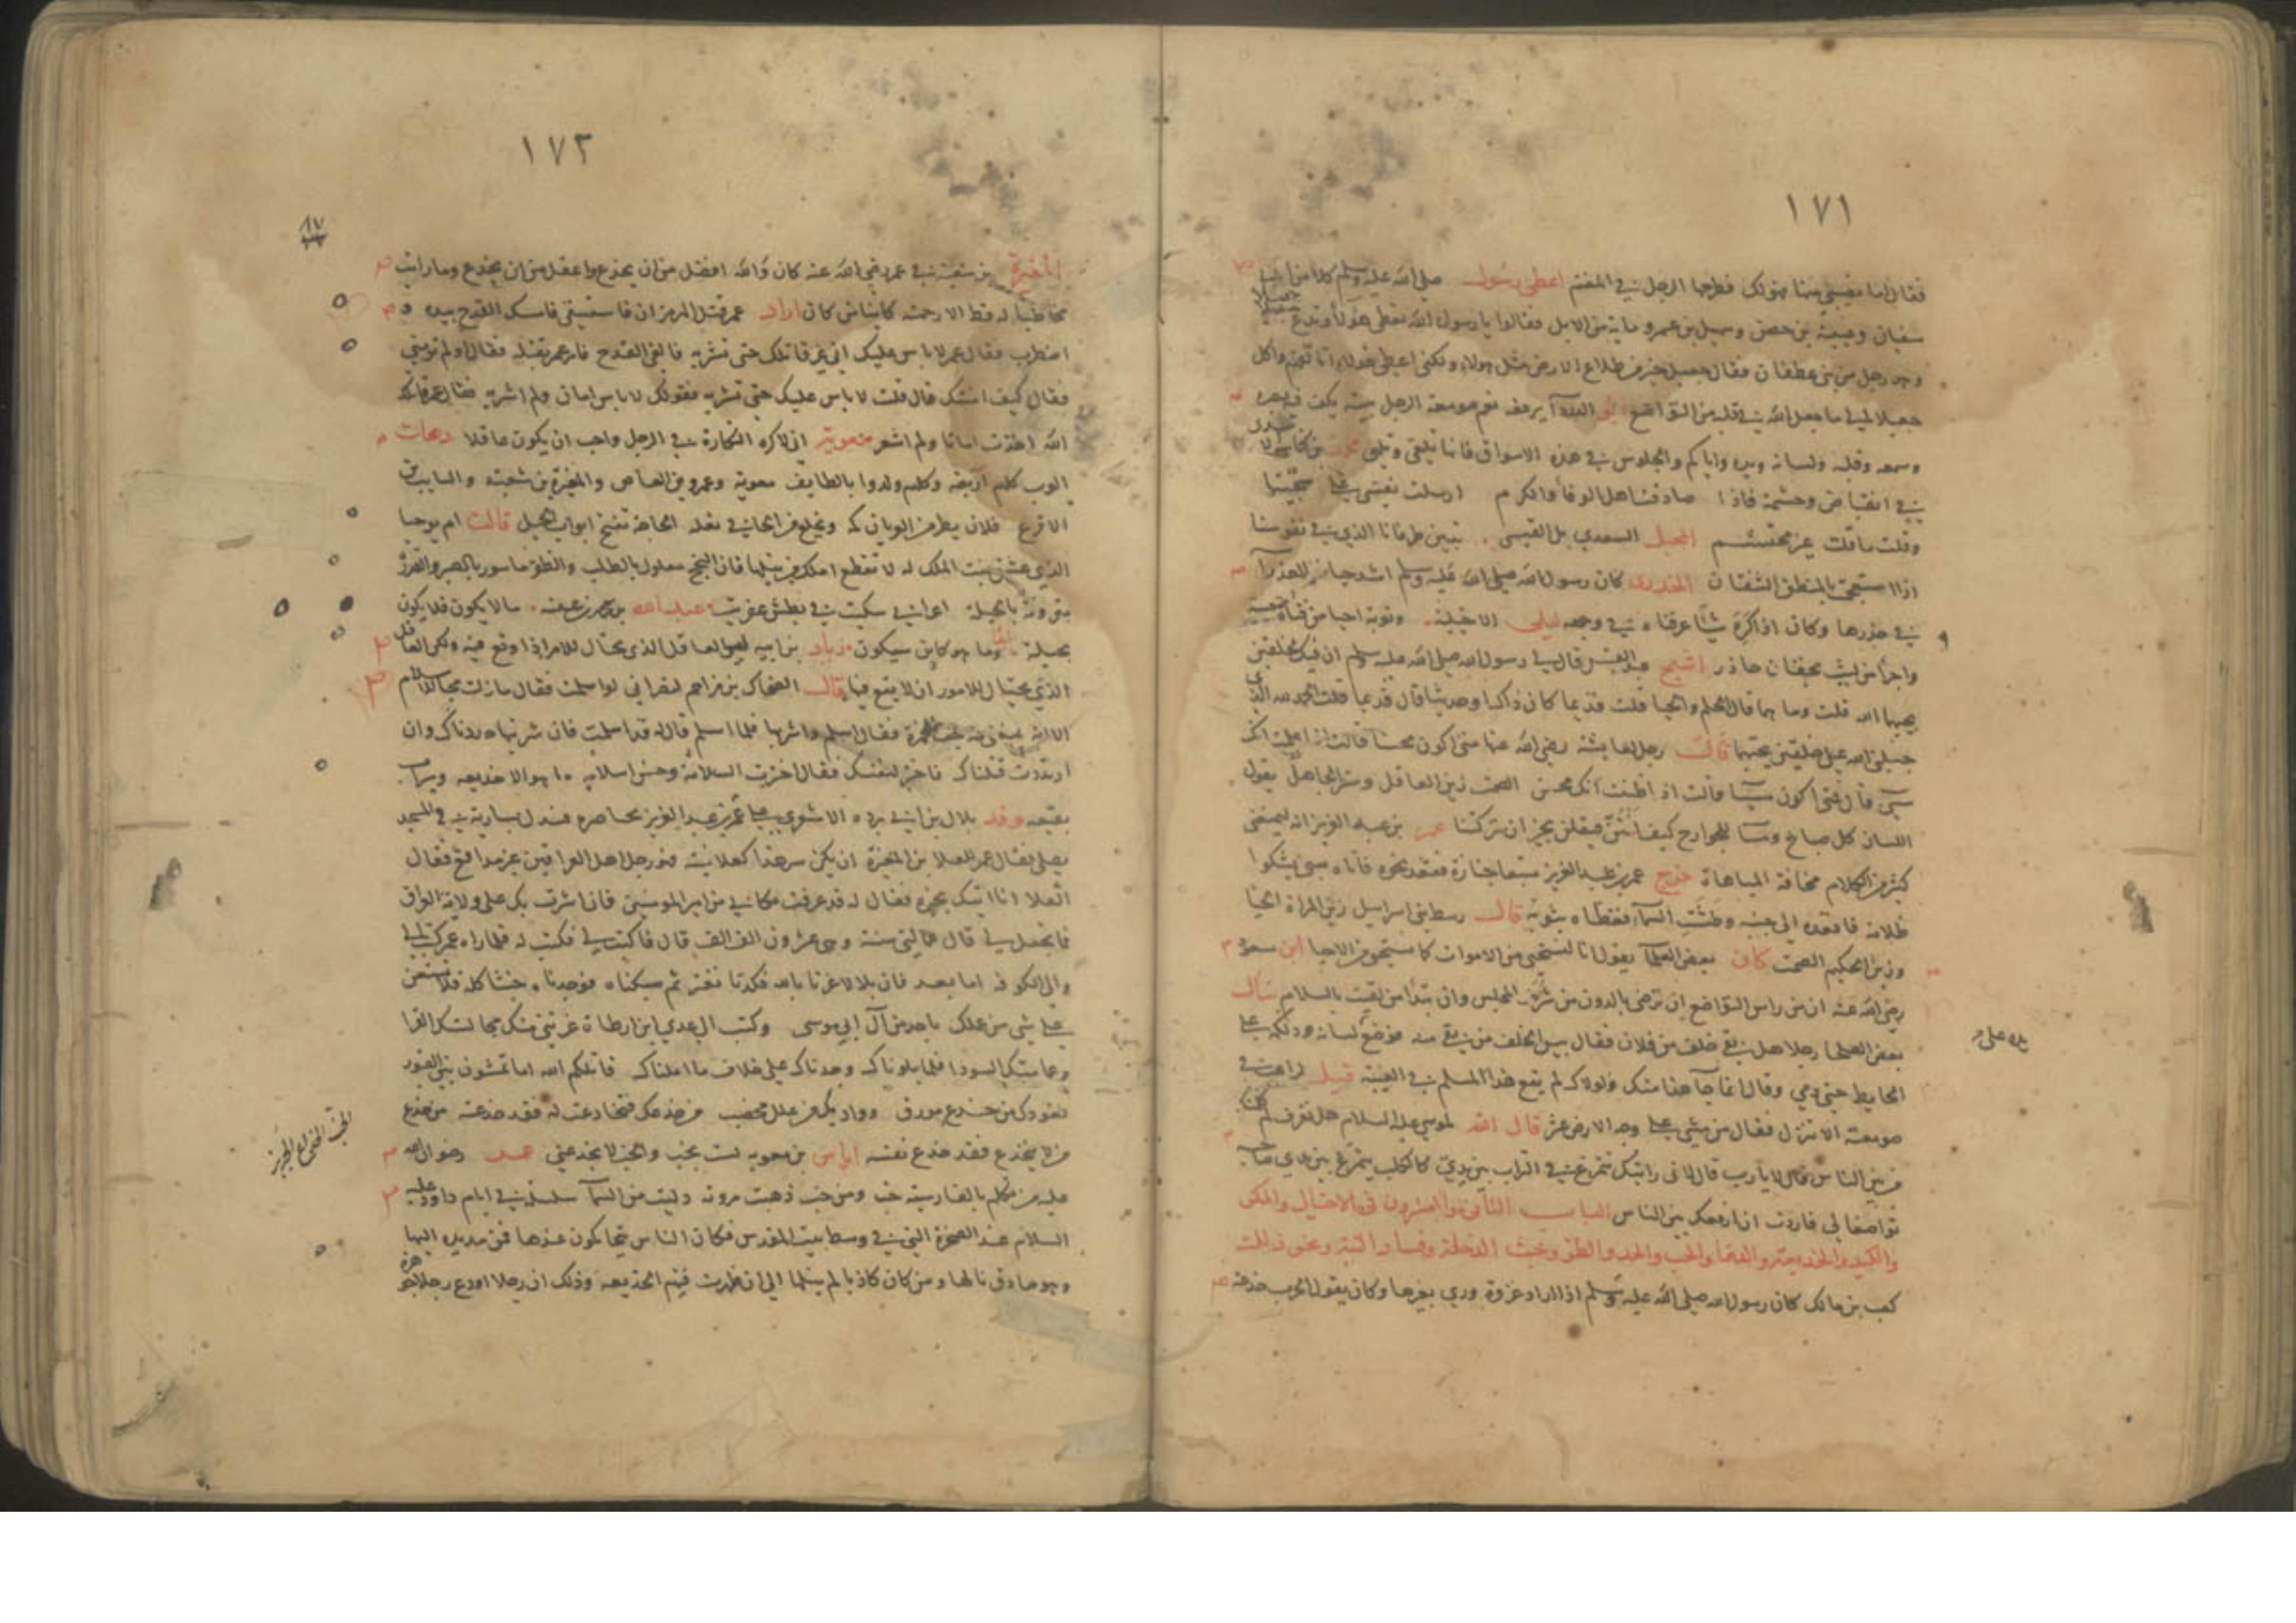 ١٧١
فقال اما نصيبي منها فهو لك فطرحها الرجل في المغنم اعطى رسول صلى الله عليه وسلم كلا من ابي
سفيان وعيينة بن حصن وسهيل بن عمرو ماية من الابل فقالوا يا رسول الله تعطي هؤلأ وتدع جعيلا
وهو رجل من بني غطفان فقال جعيل خير من طلاع الارض مثل هولاء ولكني اعطي هولاء اتألفهم واكل
جعيلا لى ما جعل الله في قلبه من التواضع ابو الدردآ يرفعه نعم صومعة الرجل بيته يكف فيه بصره
وسمعه وقلبه ولسانه ويده واياكم والجلوس في هذه الاسواق فانها تلغى وتلهى محمد بن كناسة
في انقباض وحشمة فاذا صادفت اهل الوفأ والكرم ارسلت نفسي على سجيتها
وقلت ما قلت غير محتشم المخبل السعدي بل القيسى تبين طرفانا الذي في نفوسنا
اذا استعجمت بالمنطق الشفتان الخدري كان رسول الله صلى الله عليه وسلم اشد حياء من العذرآ
في خدرها وكان اذا كره شيًا عرفناه في وجهه ليلى الاخيلية وتوبة احيا من فتاة حيية
واجرا من ليث بخفان خادر اشج عبد القيس قال لي رسول الله صلى الله عليه وسلم ان فيك خلقين
يحبهما الله قلت وما هما قال الحلم والحيا قلت قديما كان ذاك او حديثا قال قديما قلت الحمد لله الذي
جبلني الله على خلقين يحبهما قال رجل لعايشة رضي الله عنها متى اكون محسنا قالت اذا علمت انك
سيى قال فمتى اكون سيئا قالت اذا ظننت انك محسن الصمت زين العاقل وستر الجاهل يقول
اللسان كل صباح ومسآ للجوارح كيف انتن فيقلن بخير ان تركتنا عمر بن عبد العزيز انه ليمنعني
كثير من الكلام مخافة المباهاة خرج عمر بن عبد العزيز متبعا جنازة فقعد نحره فاتاه صبي يشكوا
ظلامة فاقعده الى جنبه وطشت السمآ فغطاه بثوبه قالت بني اسرايل زين المراة الحيا
وزين الحكيم الصمت كان بعض العلمآ يقول انا لنستحي من الاموات كما نستحي من الاحيا ابن مسعود
رضي الله عنه ان من راس التواضع ان ترضى بالدون من شرف المجلس وان تبدا من لقيت بالسلام سأل
بعض العلما رجلا هل بقي خلف من فلان فقال بيس الخلف من بقي منه فوضع لسانه ودلكه على
الحايط حتى دمي وقال انما جآ هذا منك ولولاك لم يقع هذا المسلم في الغيبة قيل لراهب في
صومعة الا تنزل فقال من مشى على وجه الارض عثر قال الله لموسى عليه السلام هل تعرف لم
من بين الناس قال لا يارب قال لاني رايتك تتمرغ في التراب بين يدي كالكلب يتمرغ بين يدي صاحبه
تواضعا لي فاردت ان ارفعك بين الناس الباب الثاني والعشرون في الاحتيال والمكر
والكيد والخديعة والدهأ والخب والجد والطر وخبث الدخلة وفساد النية ونحو ذلك
كعب بن مالك كان رسول الله صلى الله عليه وسلم اذا اراد غزوة ورى بغيرها وكان يقول الحرب خدعة
١٧٢
المغيرة بن شعبة في عمر رضي الله عنه كان والله افضل من ان يخدع واعقل من ان يخدع وما رايت
مخاطبا له قط الا رحمته كاينا من كان اراد عمر قتل الهرمزان فاستسقى فامسك القدح بيده و
اضطرب فقال عمر لا باس عليك اني غير قاتلك حتى تشربه فالقى القدح فامر عمر بقتله فقال اولم تومني
فقال كيف امنتك قال قلت لا باس عليك حتى تشربه فقولك لا باس امان ولم اشربه فقال عمر قاتله
الله اخذت امانا ولم اشعر معوية اني لاكره النكارة في الرجل واحب ان يكون عاقلا دهات
العرب كلهم اربعة وكلهم ولدوا بالطايف معوية وعمرو بن العاص والمغيرة بن شعبة والسايب بن
الاقرع فلان يطر من العريان كمه ويخلع من الحافي نعله الحاجة تفتح ابواب الحيل قالت ام يوحيا
الذي عشق بنت الملك له لا تقطع املك من نيلها فان النجح معلول بالطلب والظفر ماسور بالصبر والفرز
مقرونة بالحيلة اعرابي سكيت في بطش عفريت عبد الله مالا يكون فلا يكون
بحيلة ابدا وما هو كاين سيكون زياد بن ابيه ليس العاقل الذي يحتال للامر اذا وقع فيه ولكن العاقل
الذي يحتال للامور ان لا يقع فيها قال الضحاك بن مزاحم لنصراني لو اسلمت فقال مازلت محبا للاسلام
الا انه يمنعني منه حب الخمرة فقال اسلم واشربها فلما اسلم قال له قد اسلمت فان شربتها حددناك وان
ارتددت قتلناك فاختر لنفسك فقال اخترت السلامة وحسن اسلامه ما هو الا خديعه وسراب
بقيعه وفد بلال بن ابي برده الاشعري على عمر بن عبد العزيز بخناصره فسدل بسارية في المسجد
يصلي فقال عمر للعلا بن المغيرة ان يكن سر هذا كعلانيته فهو رجل اهل العراقين غير مدافع فقال
العلا انا اتيك بخبره فقال له قد عرفت مكاني من امير المومنين فان اشرت بك على ولاية العراق
فما تجعل لي قال عمالتي سنة وهي عشرون الف الف قال فاكتب لي فكتب له فلما راه عمر كتب الى
والي الكوفة اما بعد فان بلالا غرنا بالله فكدنا نغتر ثم سبكناه فوجدناه خبثا كله فلا تستعن
على شي من عملك باحد من آل ابي موسى وكتب الى عدي ابن ارطاة غرتني منك مجالستك القرا
وعمامتك السودا فلما بلوناك وجدناك على خلاف ما املناك قاتلكم الله اما تمشون بين القبور
من خدعك فتخادعت له فقد خدعته من خدع
من لا يخدع فقد خدع نفسه اياس بن معوية لست بخب والخب لا يخدعني عمر رضوان الله
عليه من تكلم بالفارسية خب ومن خب ذهبت مروته دليت من السمآ سلسلة في ايام داود عليه
السلام عند الصخرة التي في وسط بيت المقدس فكان الناس يتحاكمون عندها فمن مد يده اليها
وهو صادق نالها ومن كان كاذبا لم ينلها الى ان ظهرت فيهم الخديعه وذلك ان رجلا اودع رجلا جوهرة